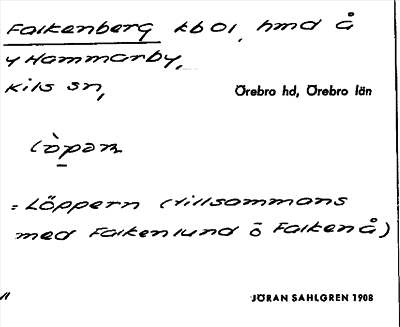 Falkenberg kb 01, hmd å
y Hammarby,
Kils sn,
Örebro hd, Örebro län
= Löppern (tillsammans
med Falkenlund o Falkenå)
JÖRAN SAHLGREN 1908